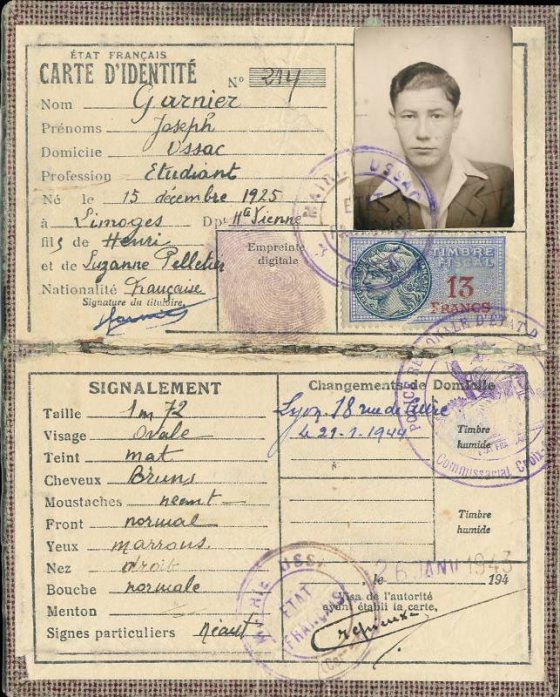 ÉTAT FRANÇAIS
CARTE D'IDENTITÉ
N° 214
Nom Garnier
Prénoms Joseph
Domicile Ussac
Profession Etudiant
Né le 15 décembre 1925
à Limoges Dpt Hte Vienne
fils de Henri
et de Suzanne Pelletier
Nationalité Française
Signature du titulaire,
Empreinte
digitale
MAIRIE USSAC
ETAT
FRANÇAIS
TIMBRE
FISCAL
13
FRANCS
SIGNALEMENT
Taille 1m72
Visage Ovale
Teint mat
Cheveux Bruns
Moustaches néant
Front normal
Yeux marrons
Nez droit
Bouche normale
Menton
Signes particuliers Néant
Changements de Domicile
Lyon. 18 rue de
le 21-1-1944
Timbre
humide
Timbre
humide
POLICE REGIONALE D'ETAT
Commissariat Croix
, le 26 JANV 1943
194
Visa de l'autorité
ayant établi la carte,
MAIRIE USSAC
ETAT
FRANÇAIS